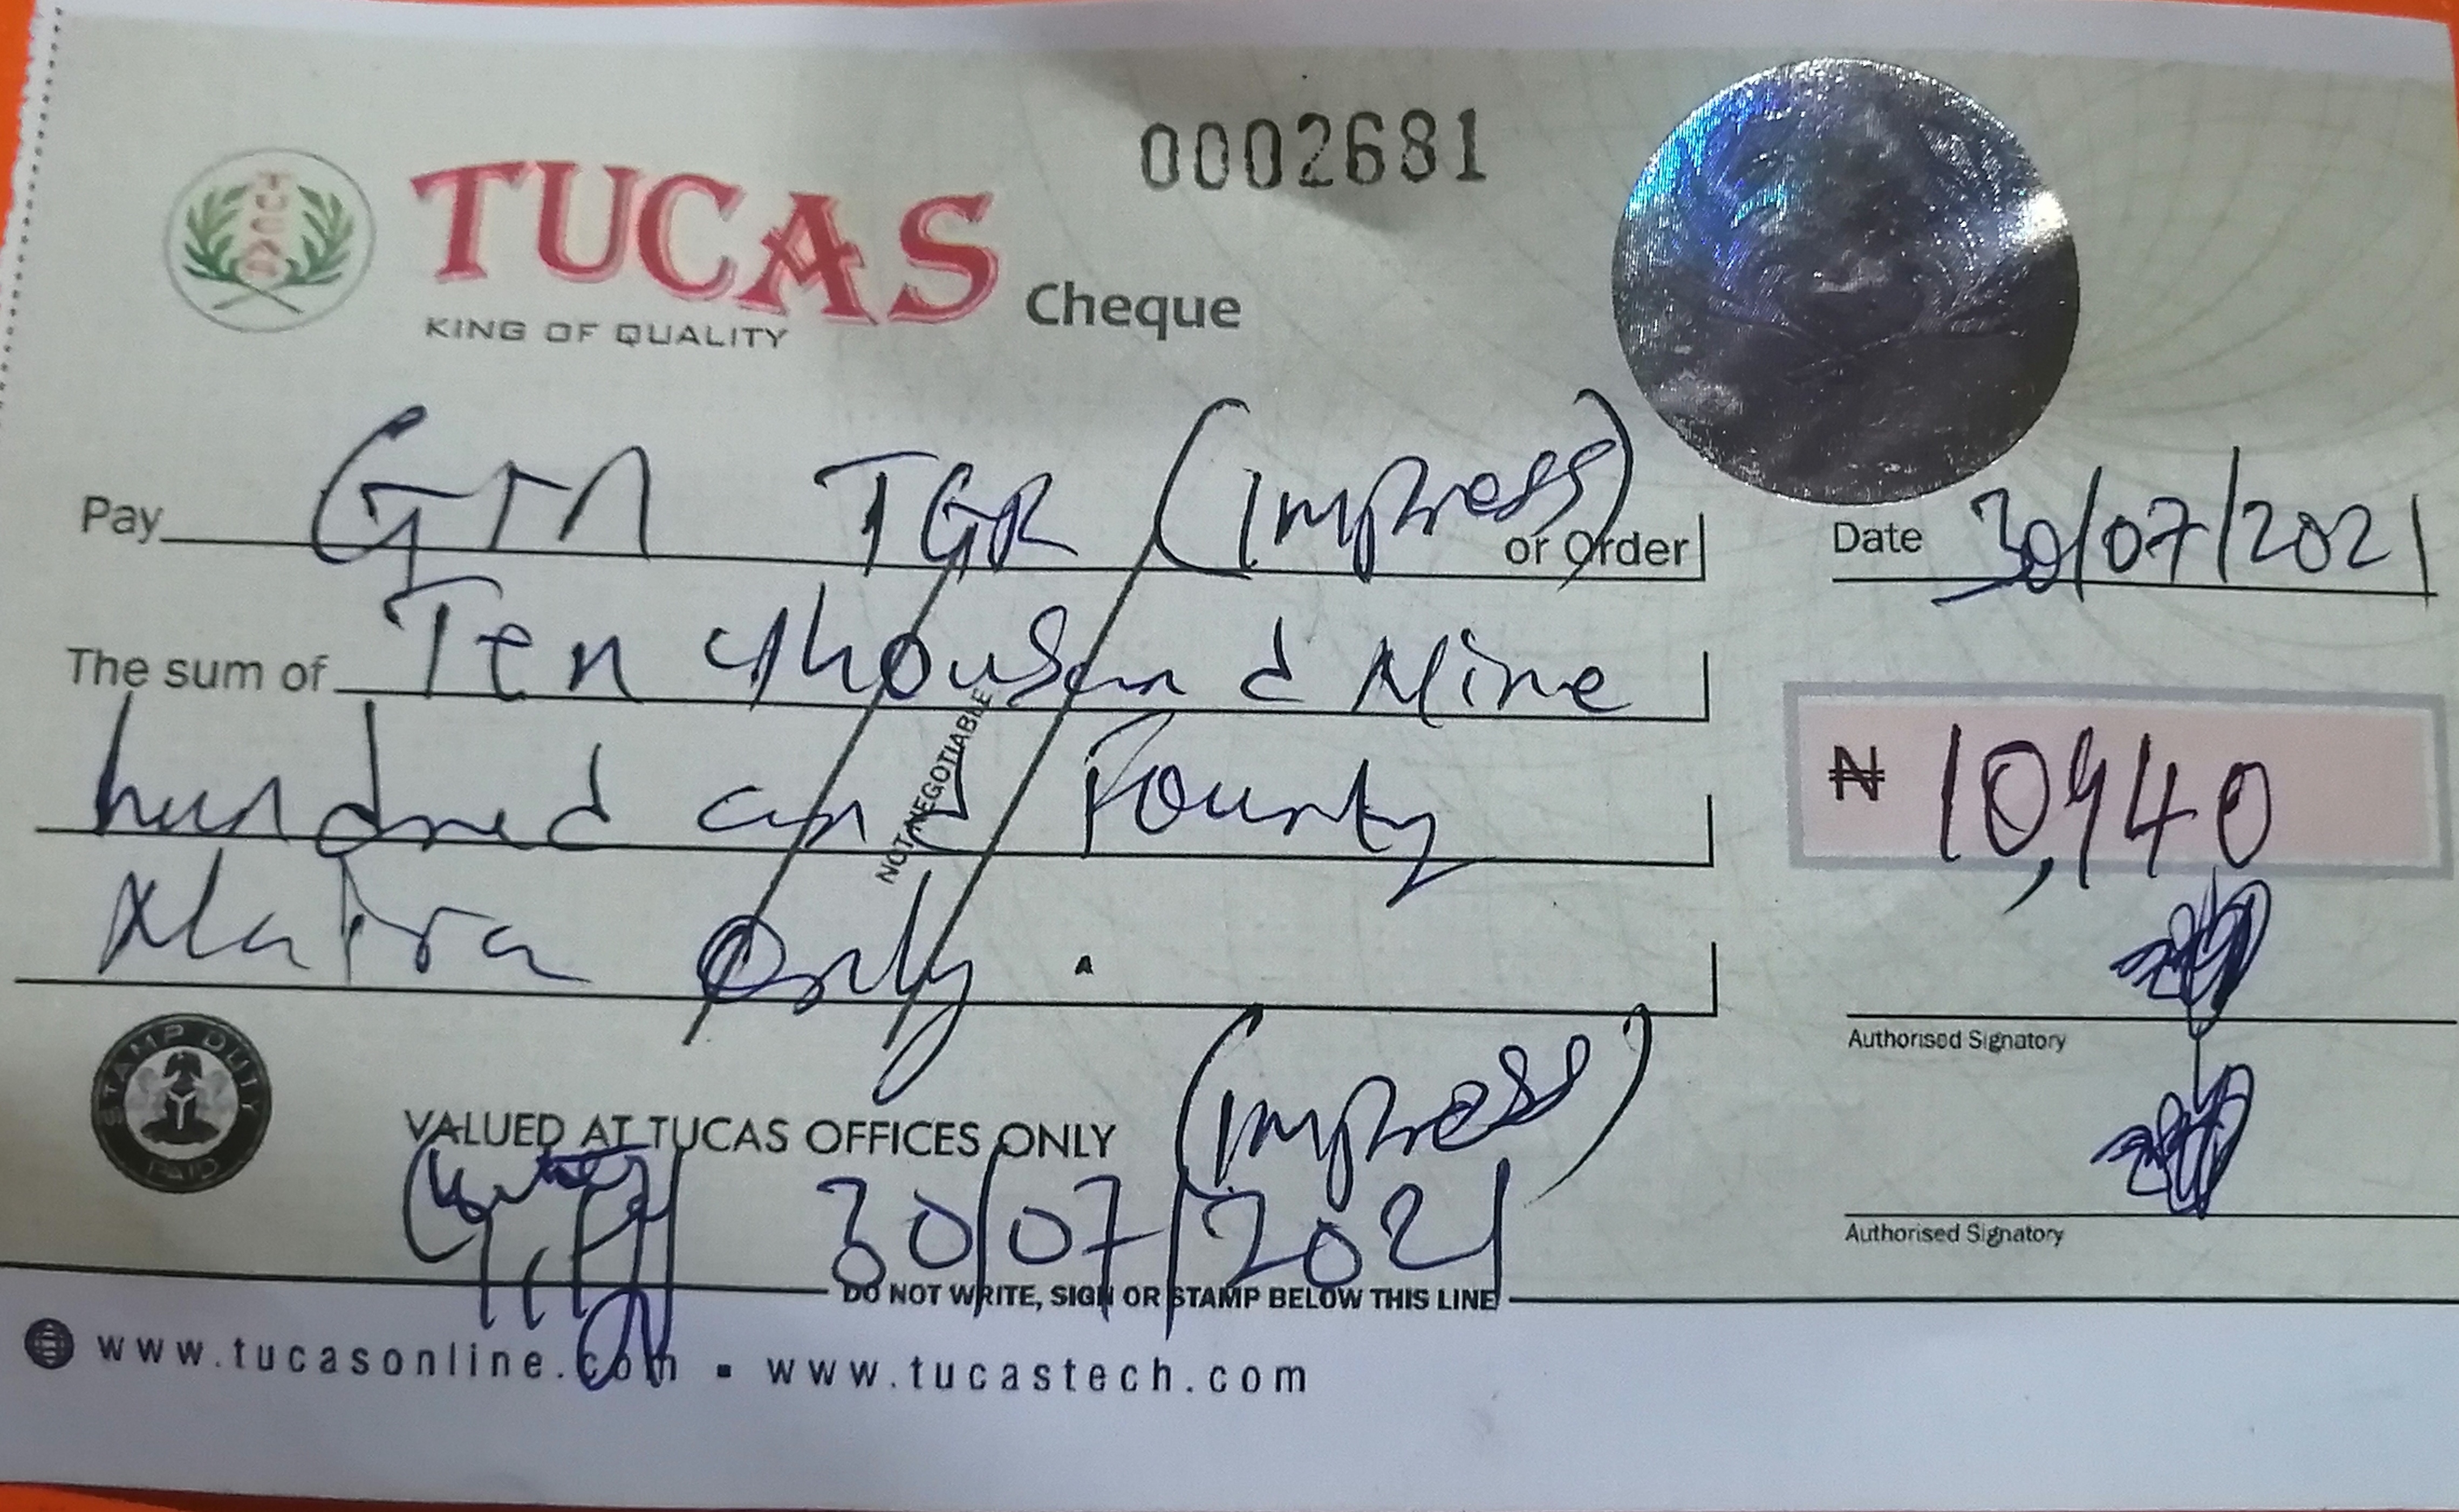 0002681
TUCAS
TUCAS Cheque
KING OF QUALITY
Pay GM TGR (Impress) or Order
Date 30/07/2021
The sum of Ten Thousand Nine
hundred and Fourty
₦ 10,940
Naira Only.
NOT NEGOTIABLE
Authorised Signatory
STAMP DUTY
PAID
VALUED AT TUCAS OFFICES ONLY
(Impress)
30/07/2021
Authorised Signatory
DO NOT WRITE, SIGN OR STAMP BELOW THIS LINE
www.tucasonline.com ▪ www.tucastech.com